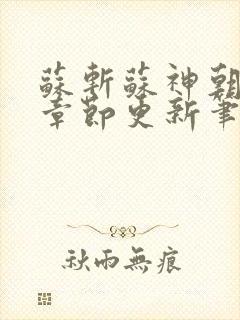 蘇斬蘇神朝
章節更新筆
秋雨無痕